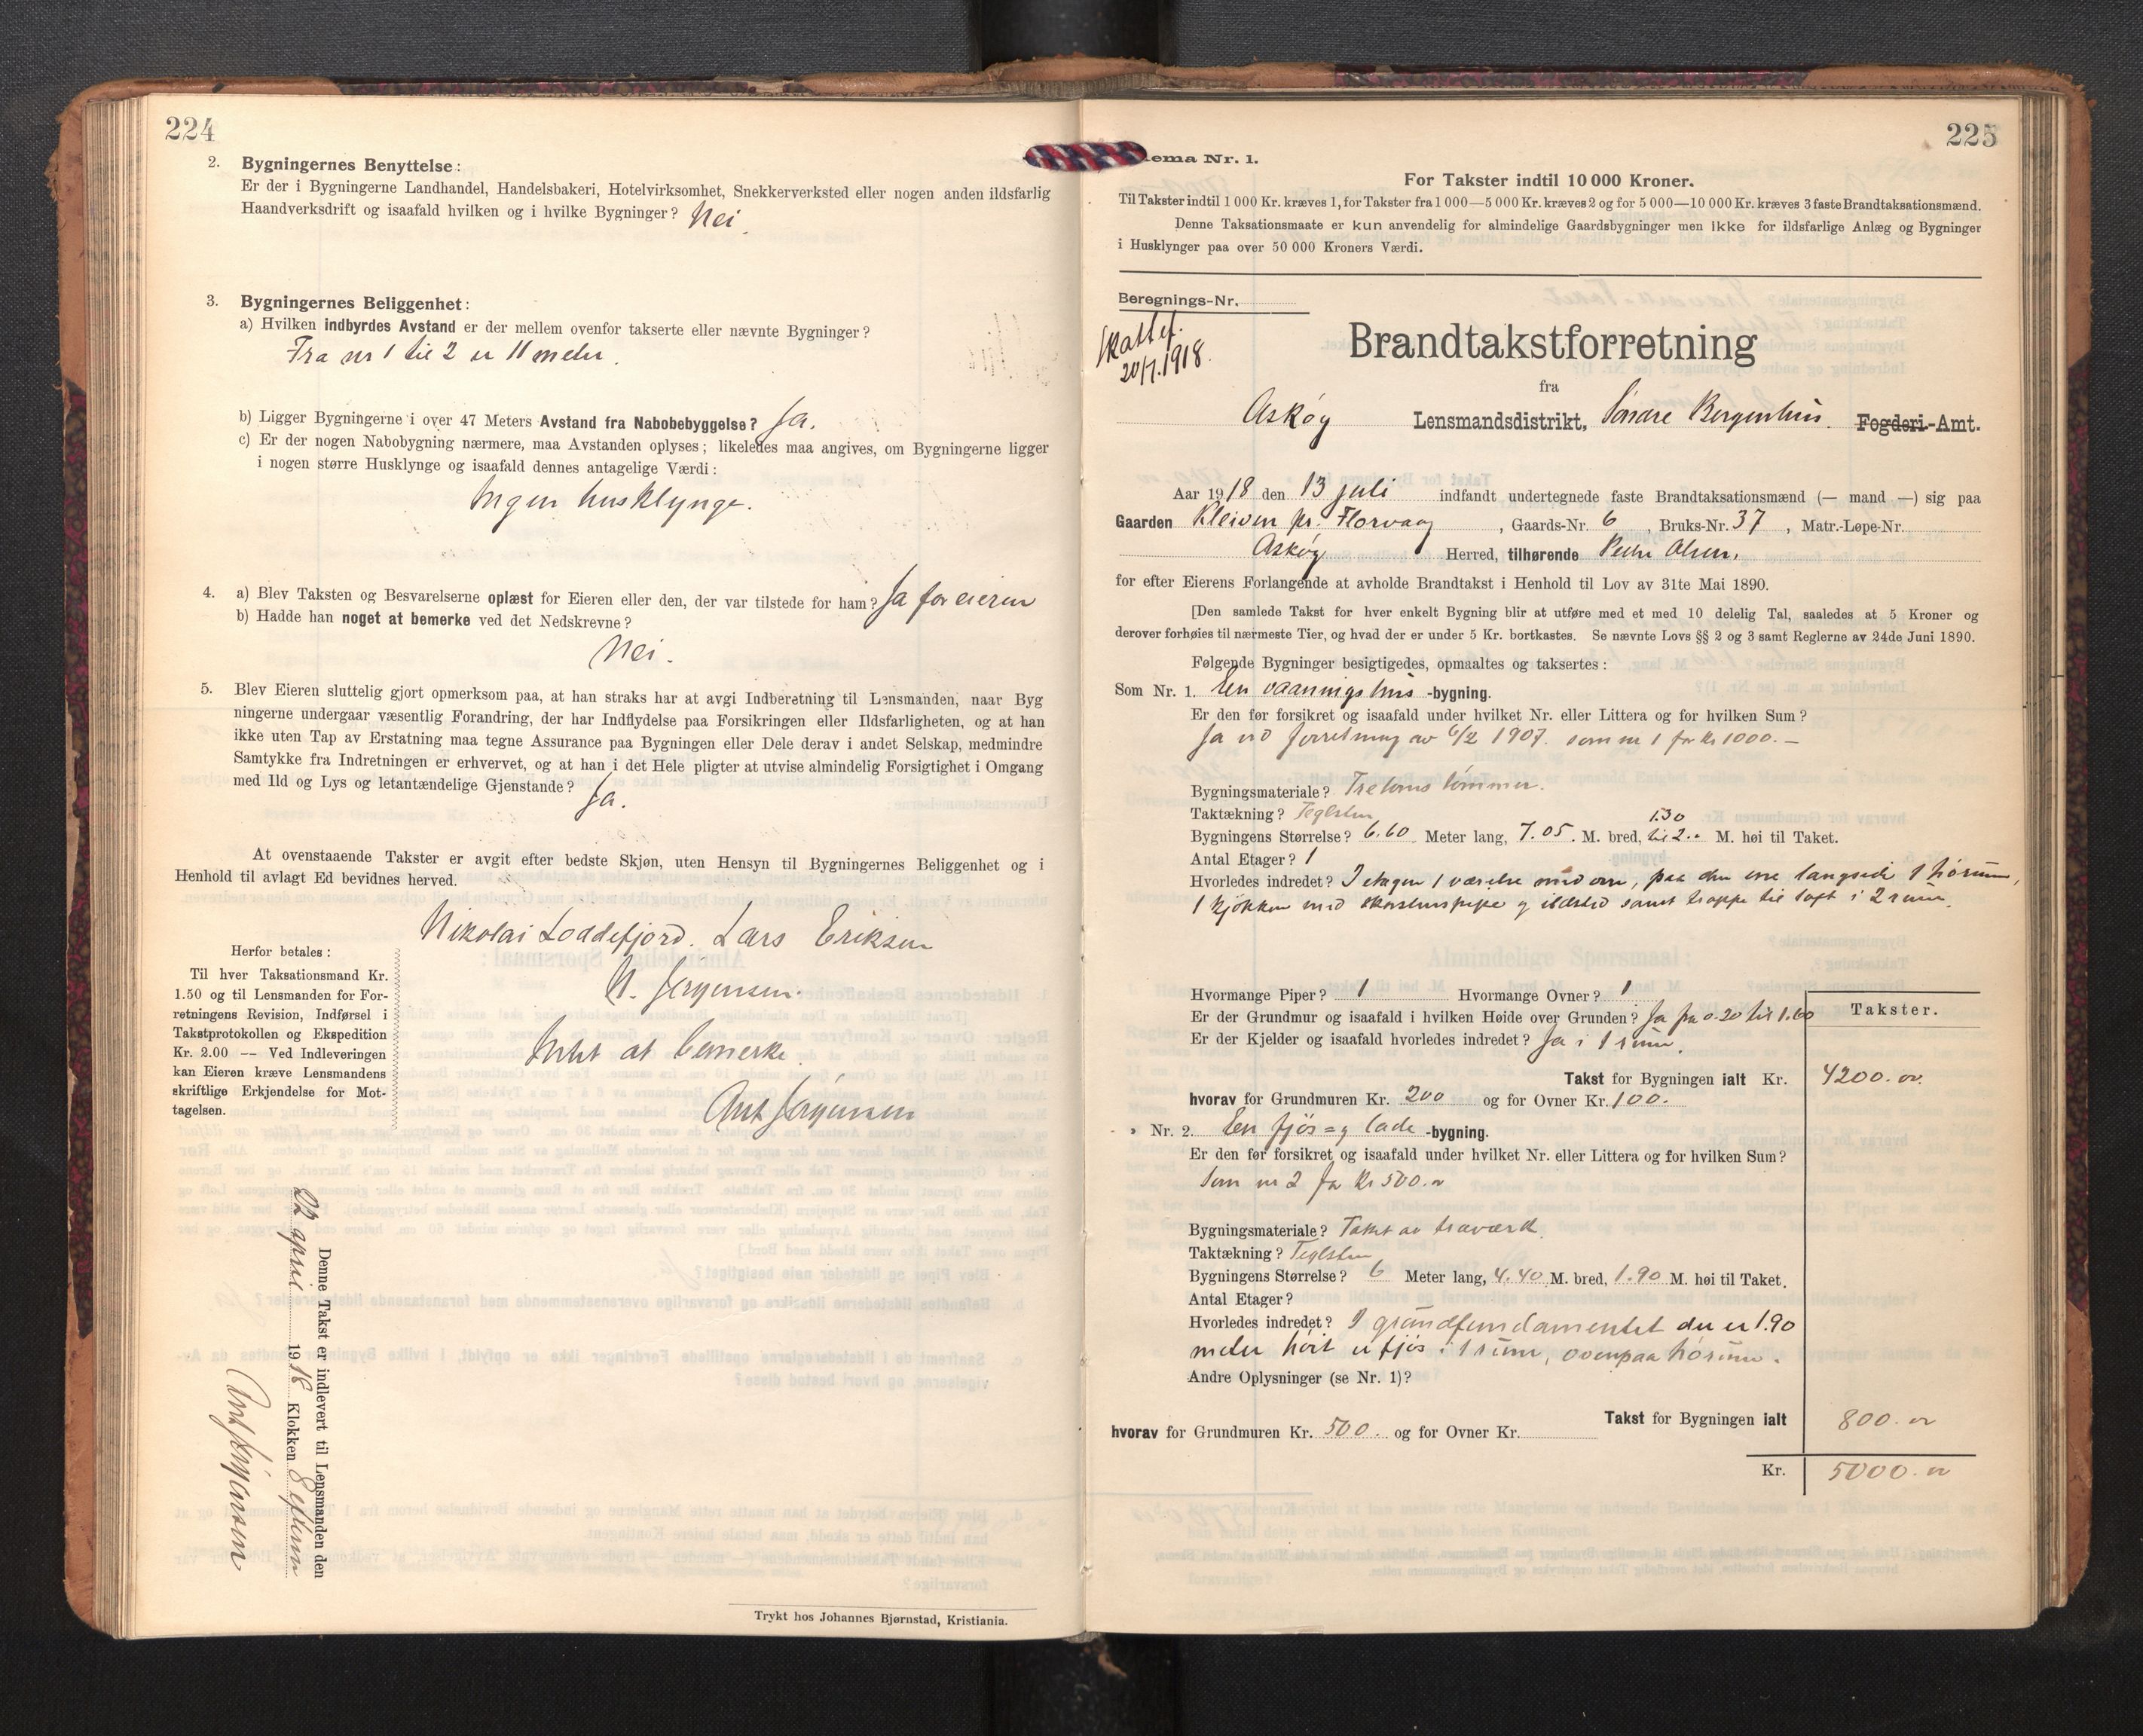 224
2. Bygningernes Benyttelse:
Er der i Bygningerne Landhandel, Handelsbakeri, Hotelvirksomhet, Snekkerverksted eller nogen anden ildsfarlig
Haandverksdrift og isaafald hvilken og i hvilke Bygninger? Nei.
3. Bygningernes Beliggenhet:
a) Hvilken indbyrdes Avstand er der mellem ovenfor takserte eller nævnte Bygninger?
Fra nr 1 til 2 er 11 meter.
b) Ligger Bygningerne i over 47 Meters Avstand fra Nabobebyggelse? Ja.
c) Er der nogen Nabobygning nærmere, maa Avstanden oplyses; likeledes maa angives, om Bygningerne ligger
i nogen større Husklynge og isaafald dennes antagelige Værdi:
Ingen husklynge.
4. a) Blev Taksten og Besvarelserne oplæst for Eieren eller den, der var tilstede for ham? Ja for eieren
b) Hadde han noget at bemerke ved det Nedskrevne?
Nei.
5. Blev Eieren sluttelig gjort opmerksom paa, at han straks har at avgi Indberetning til Lensmanden, naar Byg
ningerne undergaar væsentlig Forandring, der har Indflydelse paa Forsikringen eller Ildsfarligheten, og at han
ikke uten Tap av Erstatning maa tegne Assurance paa Bygningen eller Dele derav i andet Selskap, medmindre
Samtykke fra Indretningen er erhvervet, og at han i det Hele pligter at utvise almindelig Forsigtighet i Omgang
med Ild og Lys og letantændelige Gjenstande? Ja.
At ovenstaaende Takster er avgit efter bedste Skjøn, uten Hensyn til Bygningernes Beliggenhet og i
Henhold til avlagt Ed bevidnes herved.
Nikolai Loddefjord. Lars Eriksen
N. Jørgensen.
Intet at bemerke
Ant Jørgensen
Herfor betales:
Til hver Taksationsmand Kr.
1.50 og til Lensmanden for For-
retningens Revision, Indførsel i
Takstprotokollen og Ekspedition
Kr. 2.00 — Ved Indleveringen
kan Eieren kræve Lensmandens
skriftlige Erkjendelse for Mot-
tagelsen.
Denne Takst er indlevert til Lensmanden den
22 april 1918 Klokken 8 efterm
Ant Jørgensen
Trykt hos Johannes Bjørnstad, Kristiania.
225
ema Nr. 1.
For Takster indtil 10 000 Kroner.
Til Takster indtil 1 000 Kr. kræves 1, for Takster fra 1 000—5 000 Kr. kræves 2 og for 5 000—10 000 Kr. kræves 3 faste Brandtaksationsmænd.
Denne Taksationsmaate er kun anvendelig for almindelige Gaardsbygninger men ikke for ildsfarlige Anlæg og Bygninger
i Husklynger paa over 50 000 Kroners Værdi.
Beregnings-Nr.
20/7.1918.
Brandtakstforretning
fra
Askøy Lensmandsdistrikt, Søndre Bergenhus. Fogderi-Amt.
Aar 1918 den 13 juli indfandt undertegnede faste Brandtaksationsmænd (— mand —) sig paa
Gaarden Kleiven pr. Florvaag, Gaards-Nr. 6, Bruks-Nr. 37, Matr.-Løpe-Nr.
Askøy Herred, tilhørende Peder Olsen,
for efter Eierens Forlangende at avholde Brandtakst i Henhold til Lov av 31te Mai 1890.
[Den samlede Takst for hver enkelt Bygning blir at utføre med et med 10 delelig Tal, saaledes at 5 Kroner og
derover forhøies til nærmeste Tier, og hvad der er under 5 Kr. bortkastes. Se nævnte Lovs §§ 2 og 3 samt Reglerne av 24de Juni 1890.
Følgende Bygninger besigtigedes, opmaaltes og taksertes:
Som Nr. 1. En vaaningshus -bygning.
Er den før forsikret og isaafald under hvilket Nr. eller Littera og for hvilken Sum?
Ja ved forretning av 6/2 1907. som nr 1 for Kr 1000.—
Bygningsmateriale? Tretoms tømmer.
Taktækning? Teglsten
Bygningens Størrelse? 6.60 Meter lang, 7.05. M. bred, 1.30 til 2.- M. høi til Taket.
Antal Etager? 1
Hvorledes indredet? I etagen 1 værelse med ovn, paa den ene langside 1 hørum,
1 kjøkken med skorstenspipe og ildsted samt trappe til loft i 2 rum.
Hvormange Piper? 1 Hvormange Ovner? 1
Er der Grundmur og isaafald i hvilken Høide over Grunden? Ja fra 0.20 til 1.60
Er der Kjelder og isaafald hvorledes indredet? Ja i 1 rum.
Takster.
Takst for Bygningen ialt Kr. 4200. "
hvorav for Grundmuren Kr. 200 og for Ovner Kr. 100.
" Nr. 2. En fjøs= og lade -bygning.
Er den før forsikret og isaafald under hvilket Nr. eller Littera og for hvilken Sum?
Som nr 2 for Kr 500. "
Bygningsmateriale? Taket av traværk.
Taktækning? Teglsten
Bygningens Størrelse? 6 Meter lang, 4.40 M. bred, 1.90 M. høi til Taket.
Antal Etager?
Hvorledes indredet? I grundfundamentet der er 1.90
meter høit er fjøs i 1 rum, ovenpaa hørum.
Andre Oplysninger (se Nr. 1)?
Takst for Bygningen ialt 800. "
hvorav for Grundmuren Kr. 500. og for Ovner Kr.
Kr. 5000. "